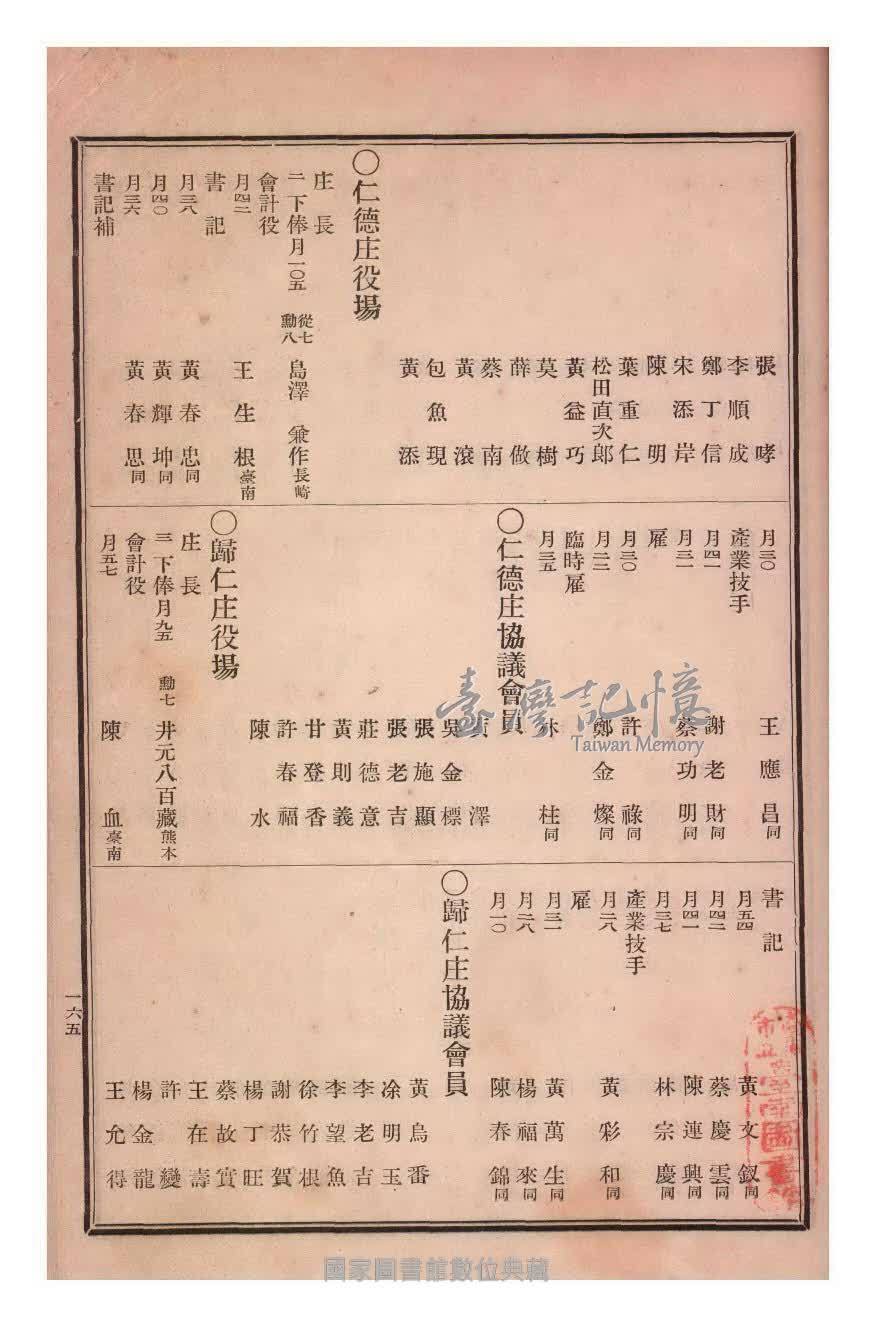 張哮
李順成
鄭丁信
宋添岸
陳明
葉重仁
松田直次郎
黃益巧
莫樹
薛做
蔡南
黃滾
包魚現
黃添
〇仁德庄役場
庄長
二下俸月一〇五 從七勳八 島澤兼作長崎
會計役
月四二 王生根臺南
書記
月三八 黃春忠同
月四〇 黃輝坤同
月三六 黃春思同
書記補
月三〇 王應昌同
產業技手
月四一 謝老財同
月三一 蔡功明同
雇
月三〇 許祿同
月二二 鄭金燦同
臨時雇
月三五 林桂同
〇仁德庄協議會員
黃澤
吳金標
張施顯
張老吉
莊德意
黃則義
甘登香
許春福
陳水
〇歸仁庄役場
庄長
三下俸月九五 勳七 井元八百藏熊本
會計役
月五七 陳血臺南
書記
月五四 黃文釵同
月四二 蔡慶雲同
月四一 陳連興同
月三七 林宗慶同
產業技手
月二八 黃彩和同
雇
月三一 黃萬生同
月二八 楊福來同
月一〇 陳春錦同
〇歸仁庄協議會員
黃烏番
涂明玉
李老吉
李望魚
徐竹根
謝恭賀
楊丁旺
蔡故實
王在壽
許變
楊金龍
王允得
一六五
臺灣記憶
Taiwan Memory
國家圖書館數位典藏